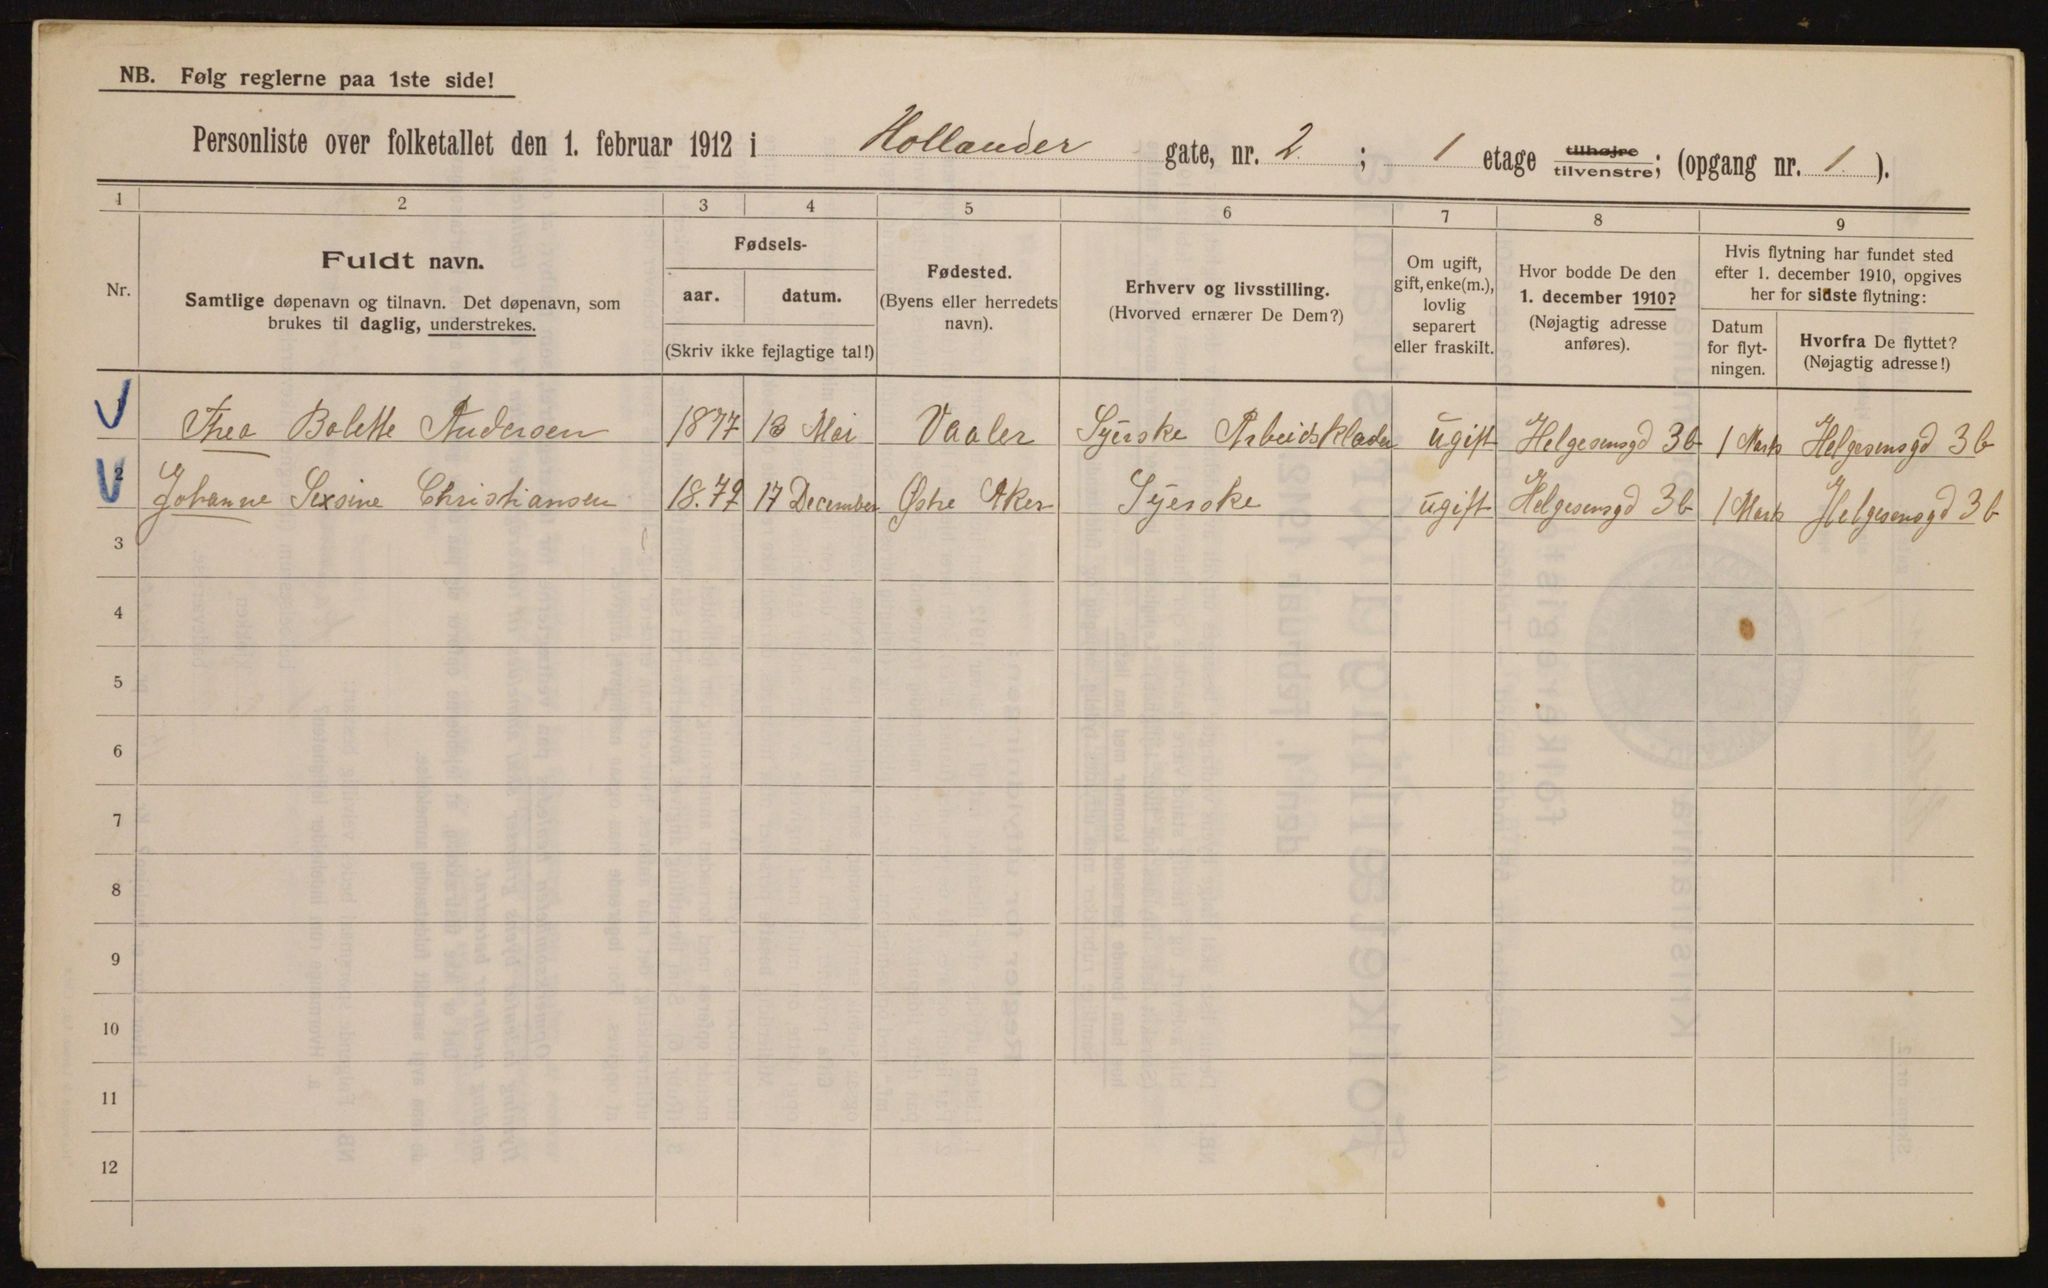 NB. Følg reglerne paa 1ste side!
Personliste over folketallet den 1. februar 1912 i Hollander gate, nr. 2 ; 1 etage tilhøjre tilvenstre; (opgang nr. 1 ).
1 2 3 4 5 6 7 8 9
Nr.
Fuldt navn.
Samtlige døpenavn og tilnavn. Det døpenavn, som
brukes til daglig, understrekes.
Fødsels-
aar. datum.
(Skriv ikke fejlagtige tal!)
Fødested.
(Byens eller herredets
navn).
Erhverv og livsstilling.
(Hvorved ernærer De Dem?)
Om ugift,
gift, enke(m.),
lovlig
separert
eller fraskilt.
Hvor bodde De den
1. december 1910?
(Nøjagtig adresse
anføres).
Hvis flytning har fundet sted
efter 1. december 1910, opgives
her for sidste flytning:
Datum
for flyt-
ningen.
Hvorfra De flyttet?
(Nøjagtig adresse!)
Thea Bolette Andersen 1877 13 Mai Vaaler Syerske Arbeidsklæder ugift Helgesensgd 3b 1 Marts Helgesensgd 3b
2 Johanne Sexsine Christiansen 18.72 17 December Østre Aker Syerske ugift Helgesensgd 3b 1 Marts Helgesensgd 3b
3
4
5
6
7
8
9
10
11
12